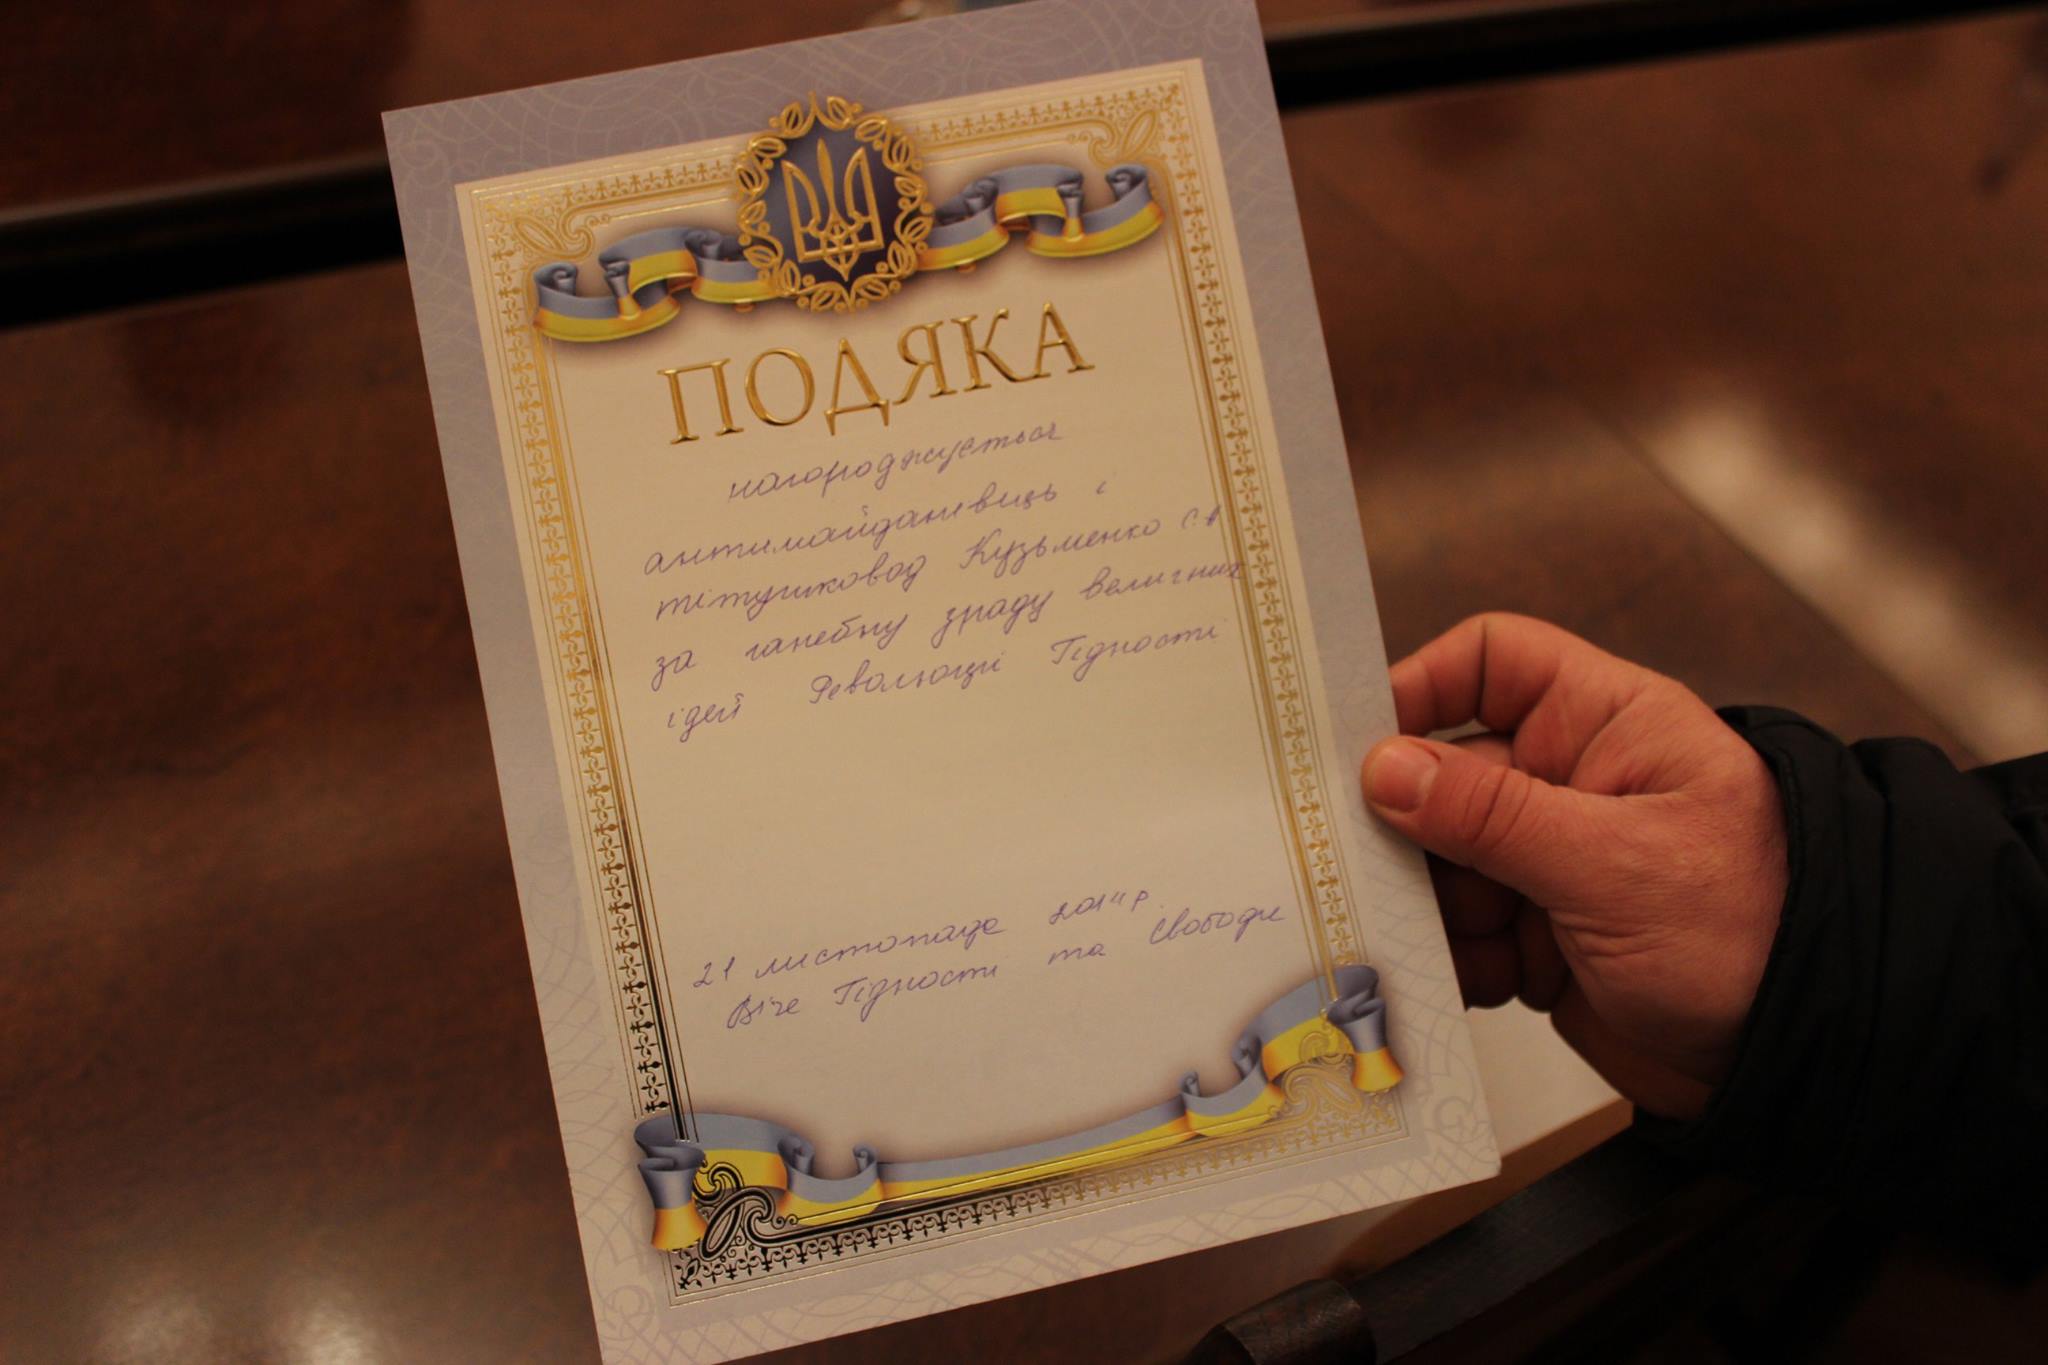 ПОДЯКА
нагороджується
антимайданівець і
тітушковод Кузьменко С.А
за ганебну зраду величних
ідей Революції Гідності
21 листопада 2014 р.
Віче Гідності та Свободи